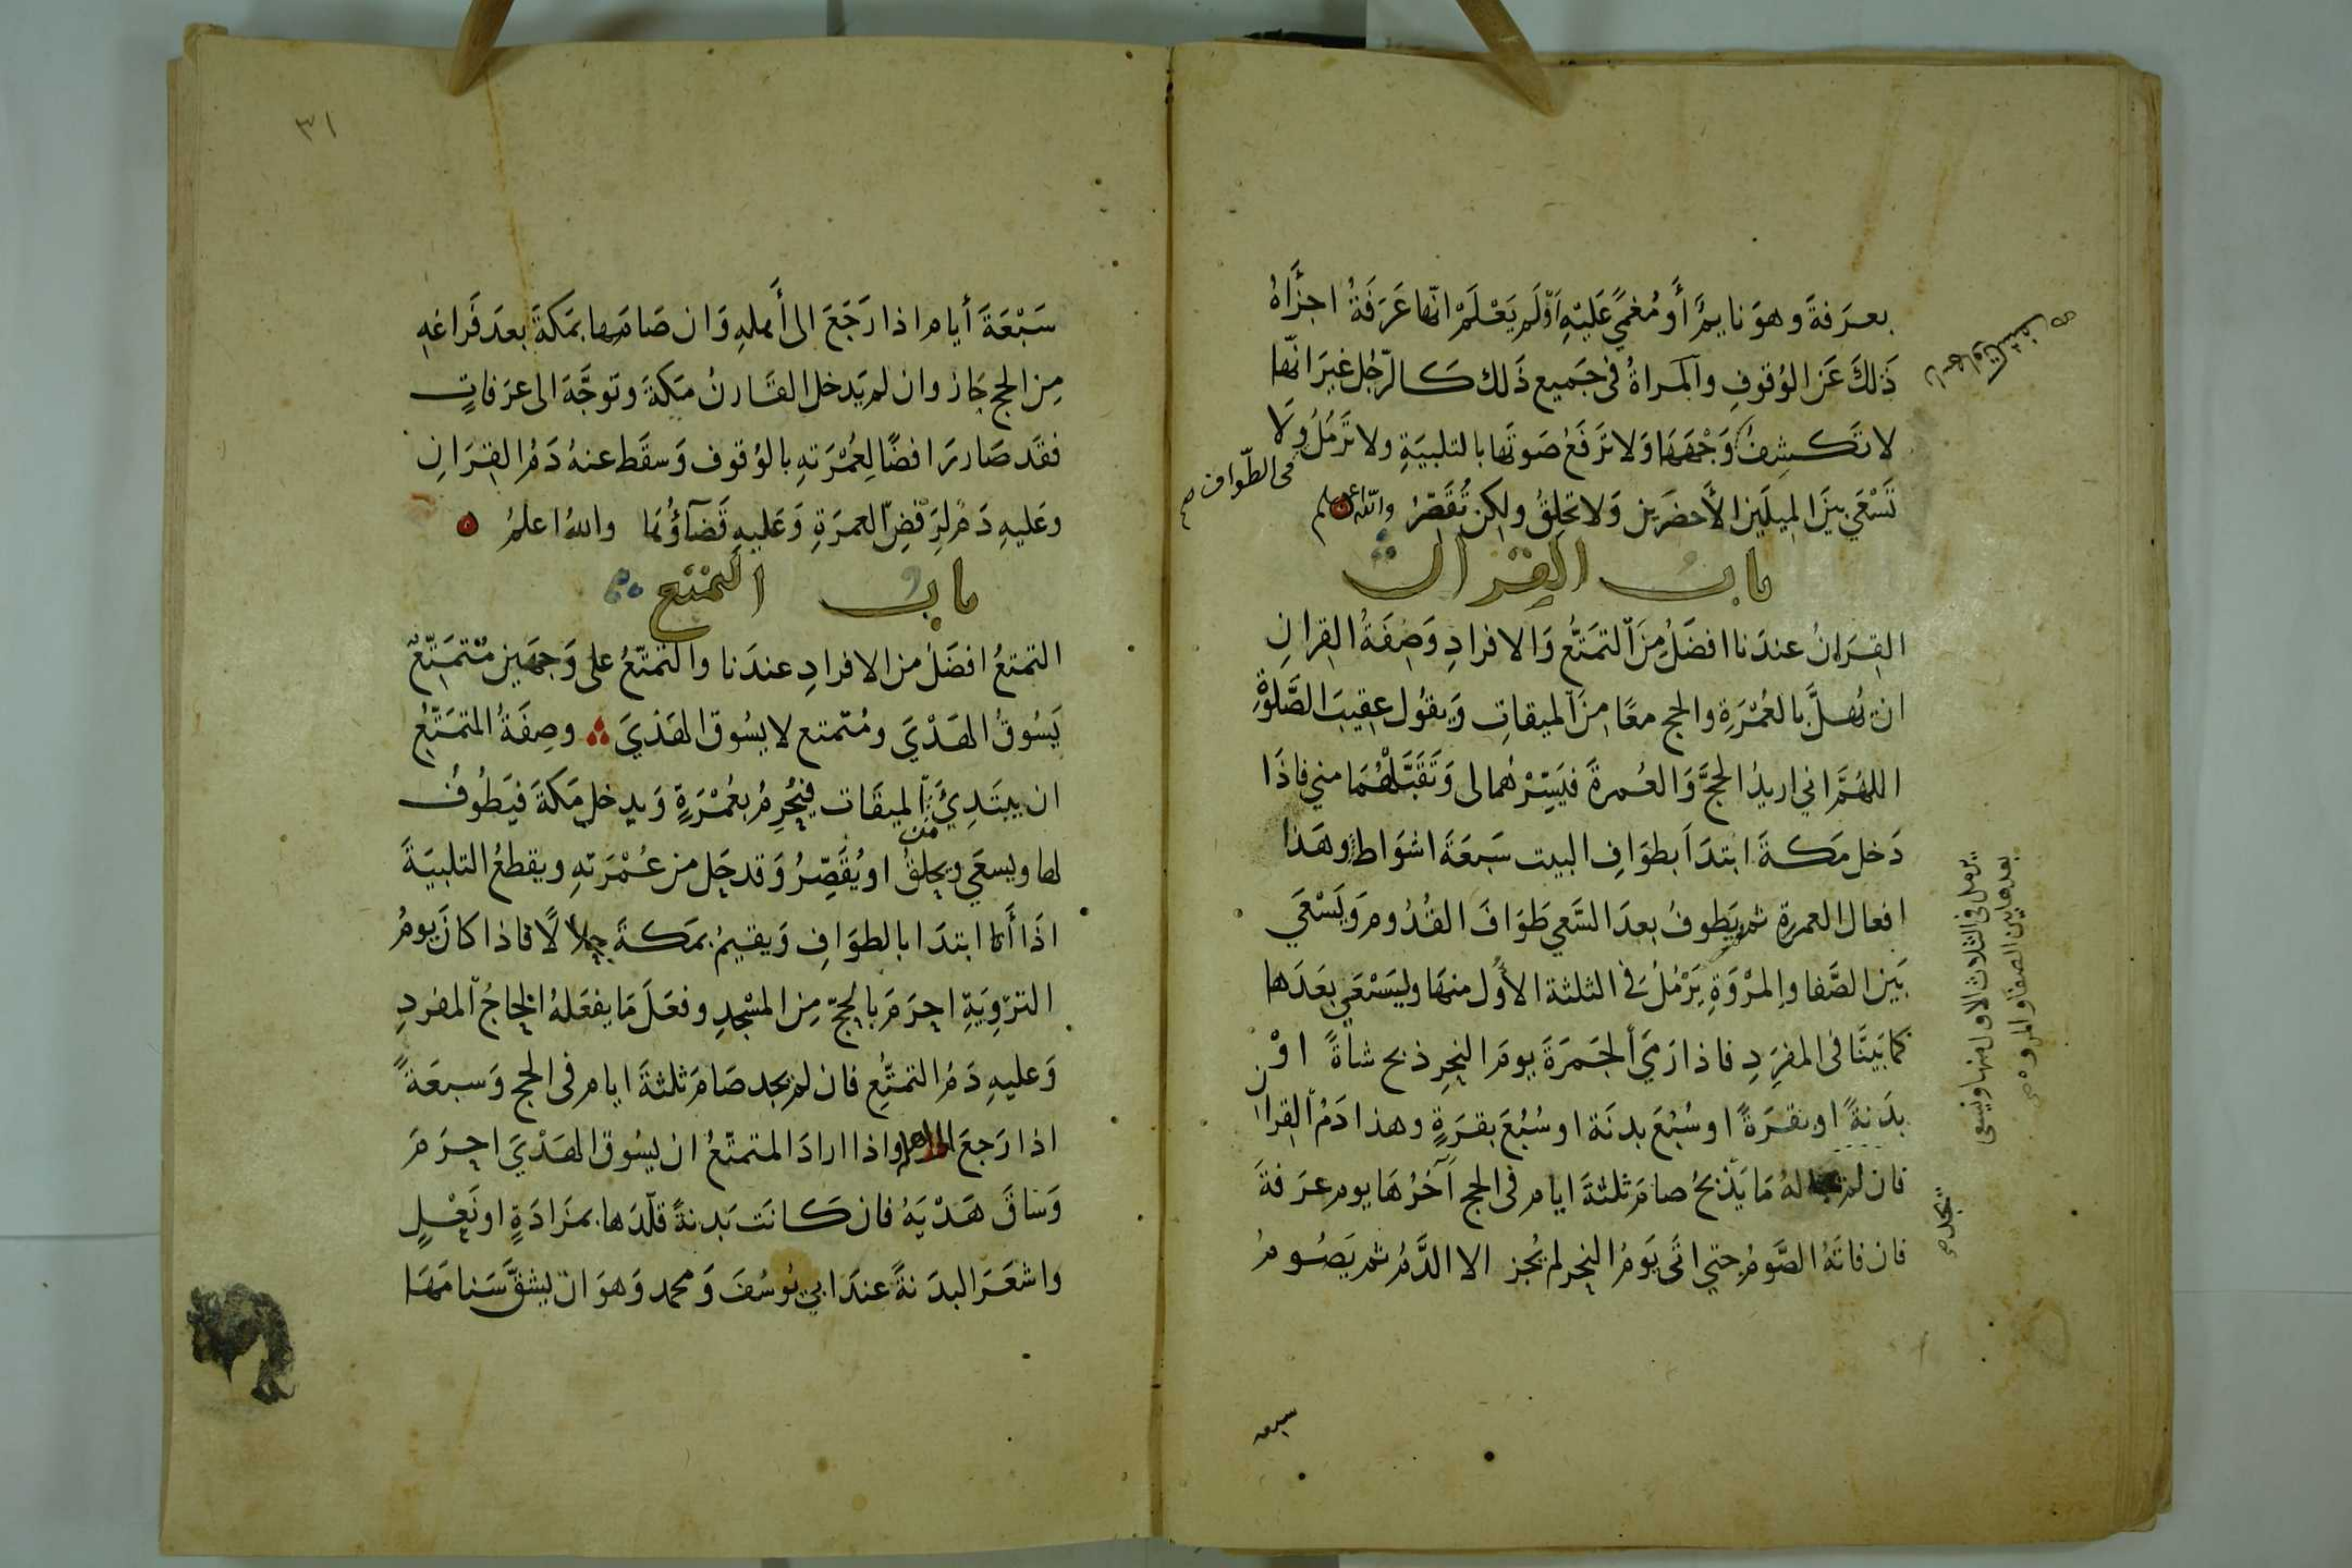 بعرَفةَ وهوَ نايمٌ أَو مُغمًي عَليْهِ اَوْ لَم يَعْلَمْ انّها عَرَفَةُ اجزَأَهُ
ذَلكَ عَن الوُقوفِ والمَراةُ فى جَميع ذَلك كَالرّجُل غيرَ انّها
لا تَكشِفُ وَجْهَهَا وَلا تَرفَعُ صَوتَها بالتلبيَةِ ولا تَرمُلُ وَلا
فى الطّواف صح
تَسْعَي بينَ المِيلَين الأَخضَرين وَلا تحلِقُ ولكن تُقَصّرُ والله اعلم
باب القِرَان
القِرَانُ عندَنا افضَلُ مِنَ التمَتُّع وَالافرادِ وَصِفَةُ القِرانِ
ان يُهلَّ بالعُمْرَةِ والحج معًا مِنَ الميقاتِ وَيقوُل عقِيبَ الصَّلوةِ
اللهُمَّ انى اريدُ الحَجَّ وَالعُمرةَ فيَسِّرْهُما لى وَتَقَبَّلْهُمَا مني فاذَا
دَخل مَكةَ ابتدَأَ بطوَافِ البيت سَبعَةَ اشوَاط وهَذا
افعال العمرةِ ثم يَطوفُ بعدَ السَّعي طَوَافَ القُدُومِ وَيَسْعَي
بَينَ الصَّفا والمرْوَةِ يَرْمُلُ فى الثلثة الأُوَل منهَا وليَسْعَي بعَدَها
يرمل فى الثلاث الاول منها ويسعى
بعدها بين الصفا والمروه صح
كما بَيَنَّا فى المفرِدِ فاذا رَمَيَ الجَمرَةَ يومَ النحِرِ ذبح شاةً اوْ
بدَنةً او بقرَةً او سُبُعَ بدنَة او سُبُعَ بقرَةٍ وهذا دَمُ القِران
فان لم لهُ مَا يَذْبحُ صامَ ثلثَةَ ايام فى الحج آخرُهَا يوم عرَفةَ
يجد صح
فان فاتَهُ الصَّومُ حتي اتَى يَومُ النحر لم يُجز الا الدَّمُ ثم يَصُومُ
سبعه
٣١
سَبْعَةَ أيام اذا رَجَعَ الى أَهلهِ وَان صَامَها بمَكةَ بعدَ فَراغهِ
مِن الحج جَازَ وان لم يَدخل القَارنُ مَكةَ وتوجَّهَ الى عرَفاتٍ
فقَد صَارَ رَافضًا لِعُمْرَتهِ بالوُقوف وَسقَط عنهُ دَمُ القِرَانِ
وعَليهِ دَمٌ لرَفْضِ العمرَةِ وَعَليهِ قَضَآؤُها والله اعلمُ
باب التمتع
التمتعُ افضَلُ من الافرادِ عندَنا والتمتّعُ على وَجهَين متمَتِّعٌ
يَسُوقُ الهَدْيَ ومُتمتع لا يسُوق الهَدْيَ وصِفَةُ المتمَتِّعِ
ان يبتَدِئَ من الميقَات فيُحْرِمُ بعُمْرَةٍ وَيدخل مَكةَ فيَطُوفُ
لها ويسعَي ويحلقُ او يُقَصِّرُ وَقد حَل من عُمْرَتهِ ويقطعُ التلبيَةَ
اذَا ابتدَا بالطوَافِ وَيقيمُ بمَكةَ حلالًا فاذا كانَ يومُ
الترّوِيَةِ احرَمَ بالحجّ مِن المسْجدِ وفعَلَ مَا يفعَلهُ الحَاجُ المفردِ
وَعليهِ دَمُ التمتُّعِ فان لم يجد صَامَ ثلثةَ ايام فى الحج وَسبعَةً
اذا رَجعَ الى اهله واذا ارادَ المتمتّعُ ان يسُوق الهَدْيَ احرَمَ
وَسَاقَ هَدْيَهُ فان كَانَت بَدنةً قلّدَها بمزَادَةٍ او نَعْلٍ
واشعَرَ البدَنةً عندَ ابي يوُسُفَ وَمحمد وَهوَ ان يشقَّ سَنامَهَا